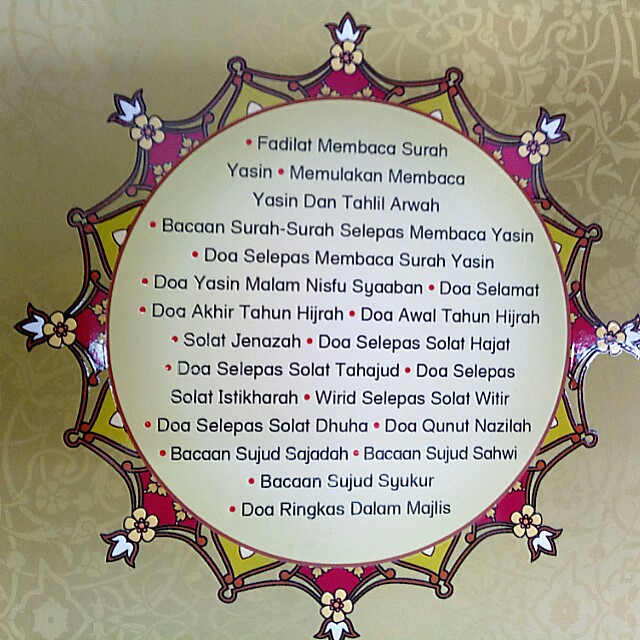 • Fadilat Membaca Surah
Yasin • Memulakan Membaca
Yasin Dan Tahlil Arwah
• Bacaan Surah-Surah Selepas Membaca Yasin
• Doa Selepas Membaca Surah Yasin
• Doa Yasin Malam Nisfu Syaaban • Doa Selamat
• Doa Akhir Tahun Hijrah • Doa Awal Tahun Hijrah
• Solat Jenazah • Doa Selepas Solat Hajat
• Doa Selepas Solat Tahajud • Doa Selepas
Solat Istikharah • Wirid Selepas Solat Witir
• Doa Selepas Solat Dhuha • Doa Qunut Nazilah
• Bacaan Sujud Sajadah • Bacaan Sujud Sahwi
• Bacaan Sujud Syukur
• Doa Ringkas Dalam Majlis